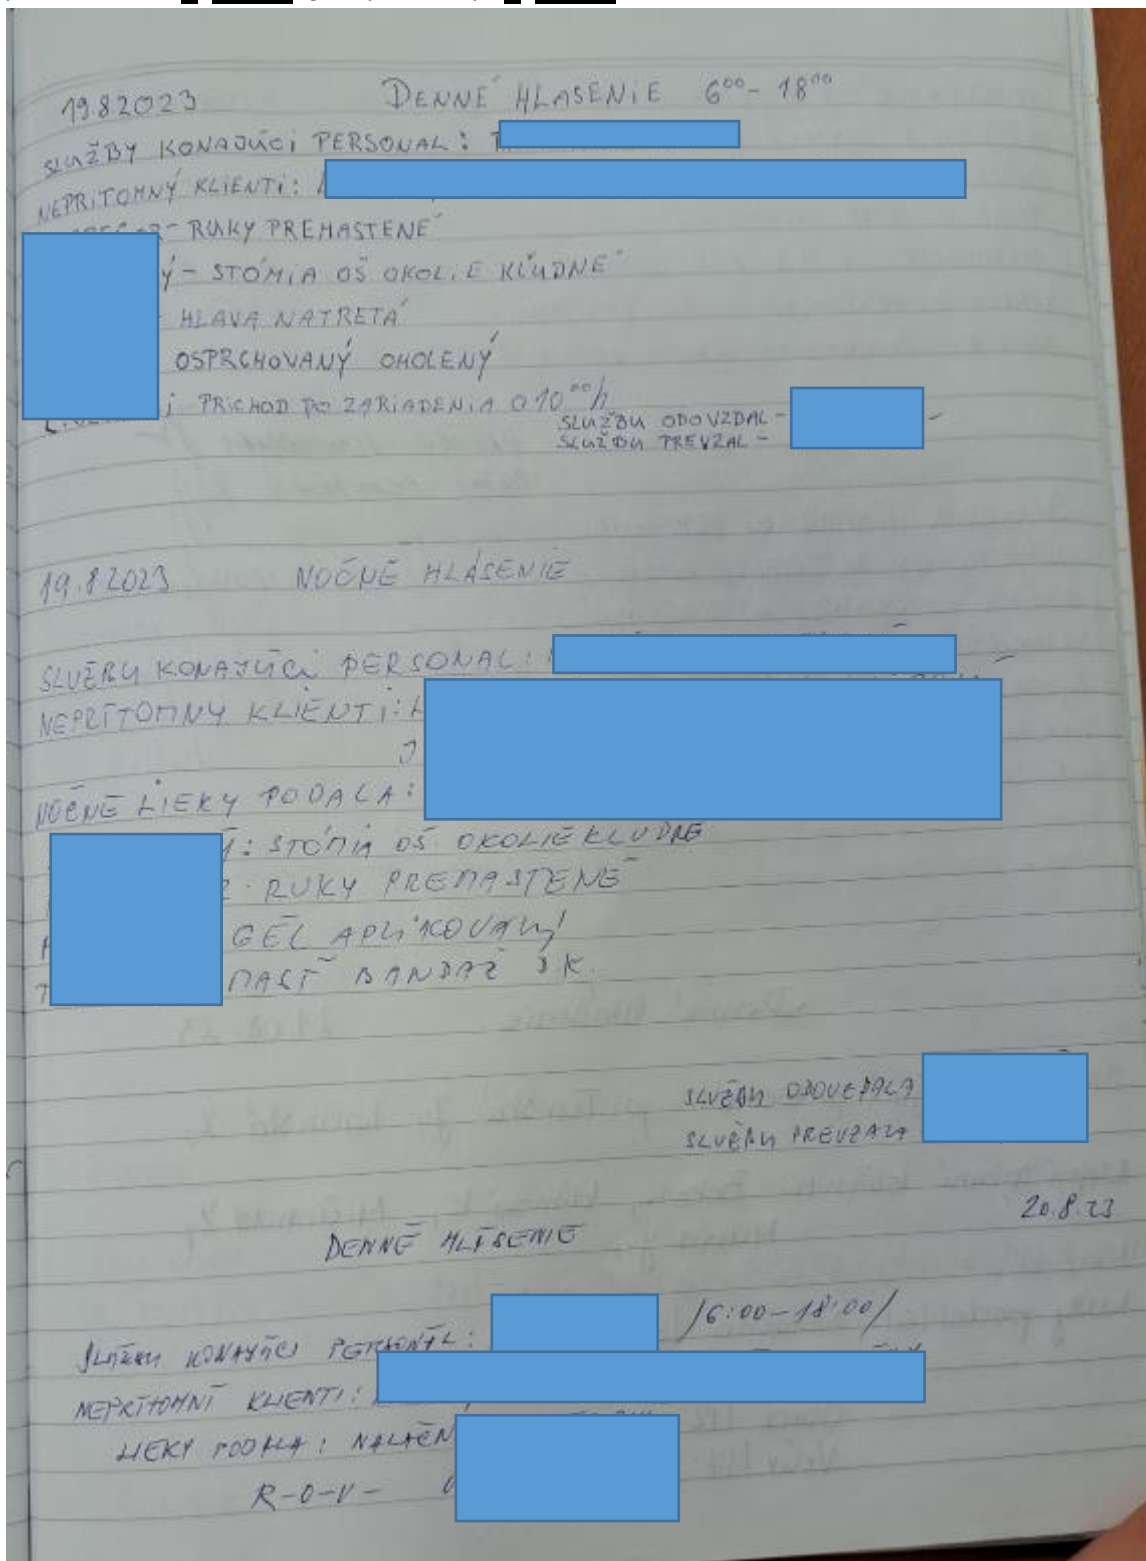 19.8.2023 DENNÉ HLASENIE 6⁰⁰- 18⁰⁰
SLUŽBY KONAJÚCI PERSONAL:
NEPRITOMNÝ KLIENTI:
- RUKY PREMASTENÉ
- STÓMIA OŠ OKOLIE KĽUDNÉ
HLAVA NATRETÁ
OSPRCHOVANÝ OHOLENÝ
PRICHOD DO ZARIADENIA O 10⁰⁰h
SLUŽBU ODOVZDAL -
SLUŽBU PREVZAL -
19.8.2023 NOČNÉ HLÁSENIE
SLUŽBU KONAJÚCI PERSONAL:
NEPRÍTOMNY KLIENTI:
NOČNÉ LIEKY PODALA:
: STÓMIA OŠ OKOLIE KLUDNE
RUKY PREMASTENÉ
GÉL APLIKOVANÝ
MASŤ BANDAŽ
SLUŽBU ODOVZDALA
SLUŽBU PREVZALA
20.8.23
DENNÉ HLÁSENIE
SLUŽBU KONAJÚCI PERSONÁL: /6:00-18:00/
NEPRÍTOMNÍ KLIENTI:
LIEKY PODALA:
R-O-V-